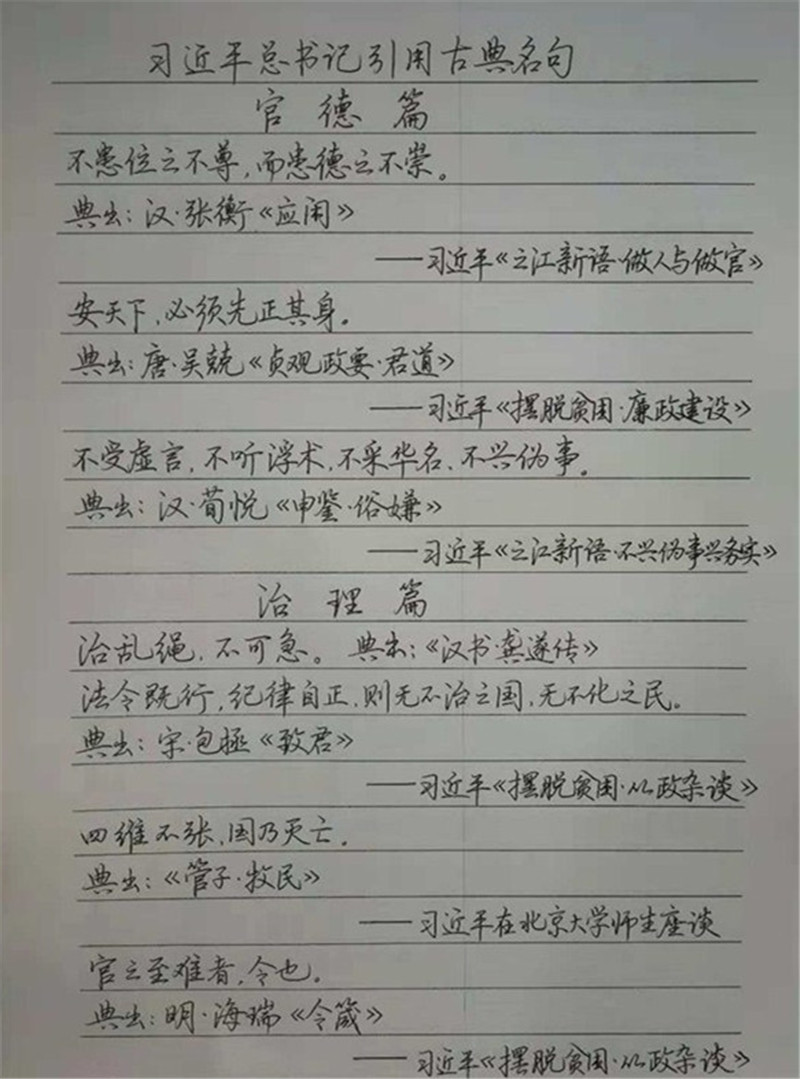 习近平总书记引用古典名句
官德篇
不患位之不尊,而患德之不崇。
典出:汉·张衡《应闲》
——习近平《之江新语·做人与做官》
安天下,必须先正其身。
典出:唐·吴兢《贞观政要·君道》
——习近平《摆脱贫困·廉政建设》
不受虚言,不听浮术,不采华名,不兴伪事。
典出:汉·荀悦《申鉴·俗嫌》
——习近平《之江新语·不兴伪事兴务实》
治理篇
治乱绳,不可急。典出:《汉书·龚遂传》
法令既行,纪律自正,则无不治之国,无不化之民。
典出:宋·包拯《致君》
——习近平《摆脱贫困·从政杂谈》
四维不张,国乃灭亡。
典出:《管子·牧民》
——习近平在北京大学师生座谈
官之至难者,令也。
典出:明·海瑞《令箴》
——习近平《摆脱贫困·从政杂谈》